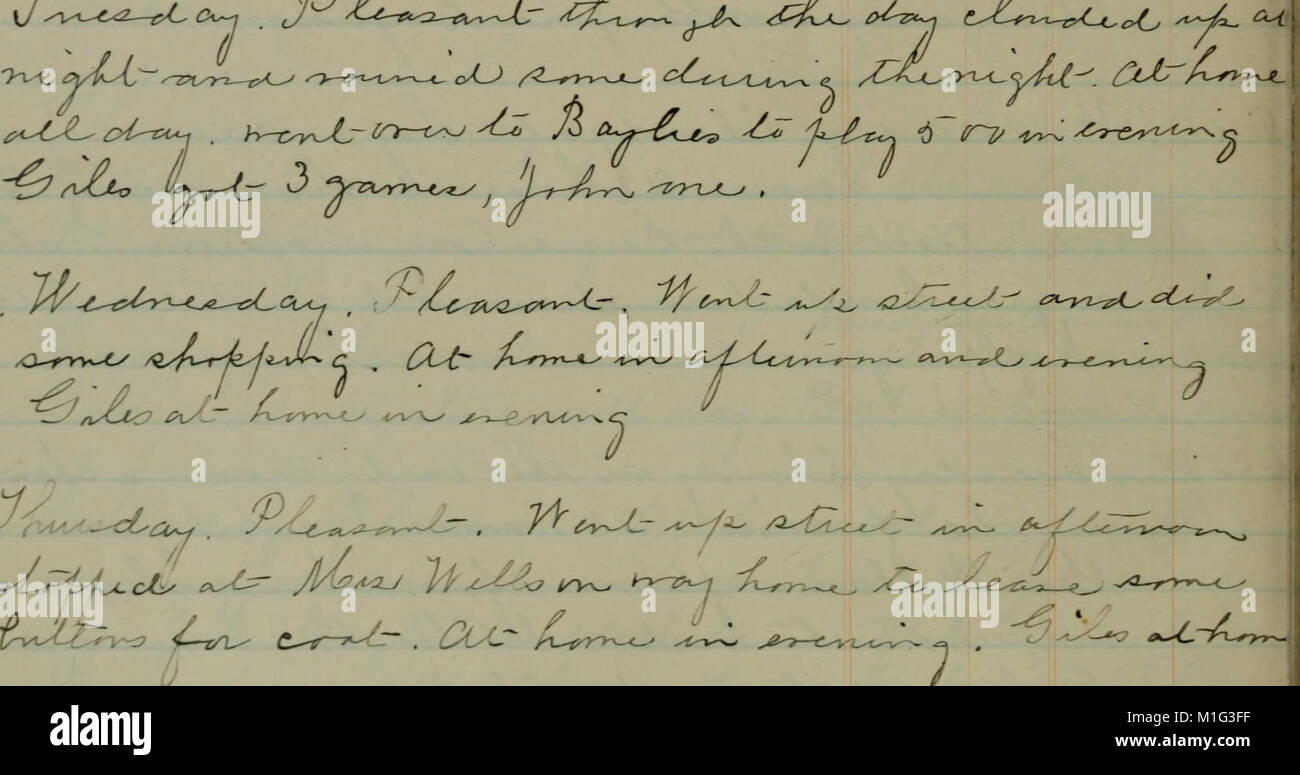 Tuesday. Pleasant through the day clouded up at
night and rained some during the night. At home
all day. went over to Baylies to play 500 in evening
Giles got 3 games, John one.
Wednesday. Pleasant. Went up street and did
some shopping. At home in afternoon and evening
Giles at home in evening
Thursday. Pleasant. Went up street in afternoon
stopped at Mrs Wells on way home to leave some
buttons for coat. At home in evening. Giles at hom
alamy stock photo
alamy
M1G3FF
www.alamy.com